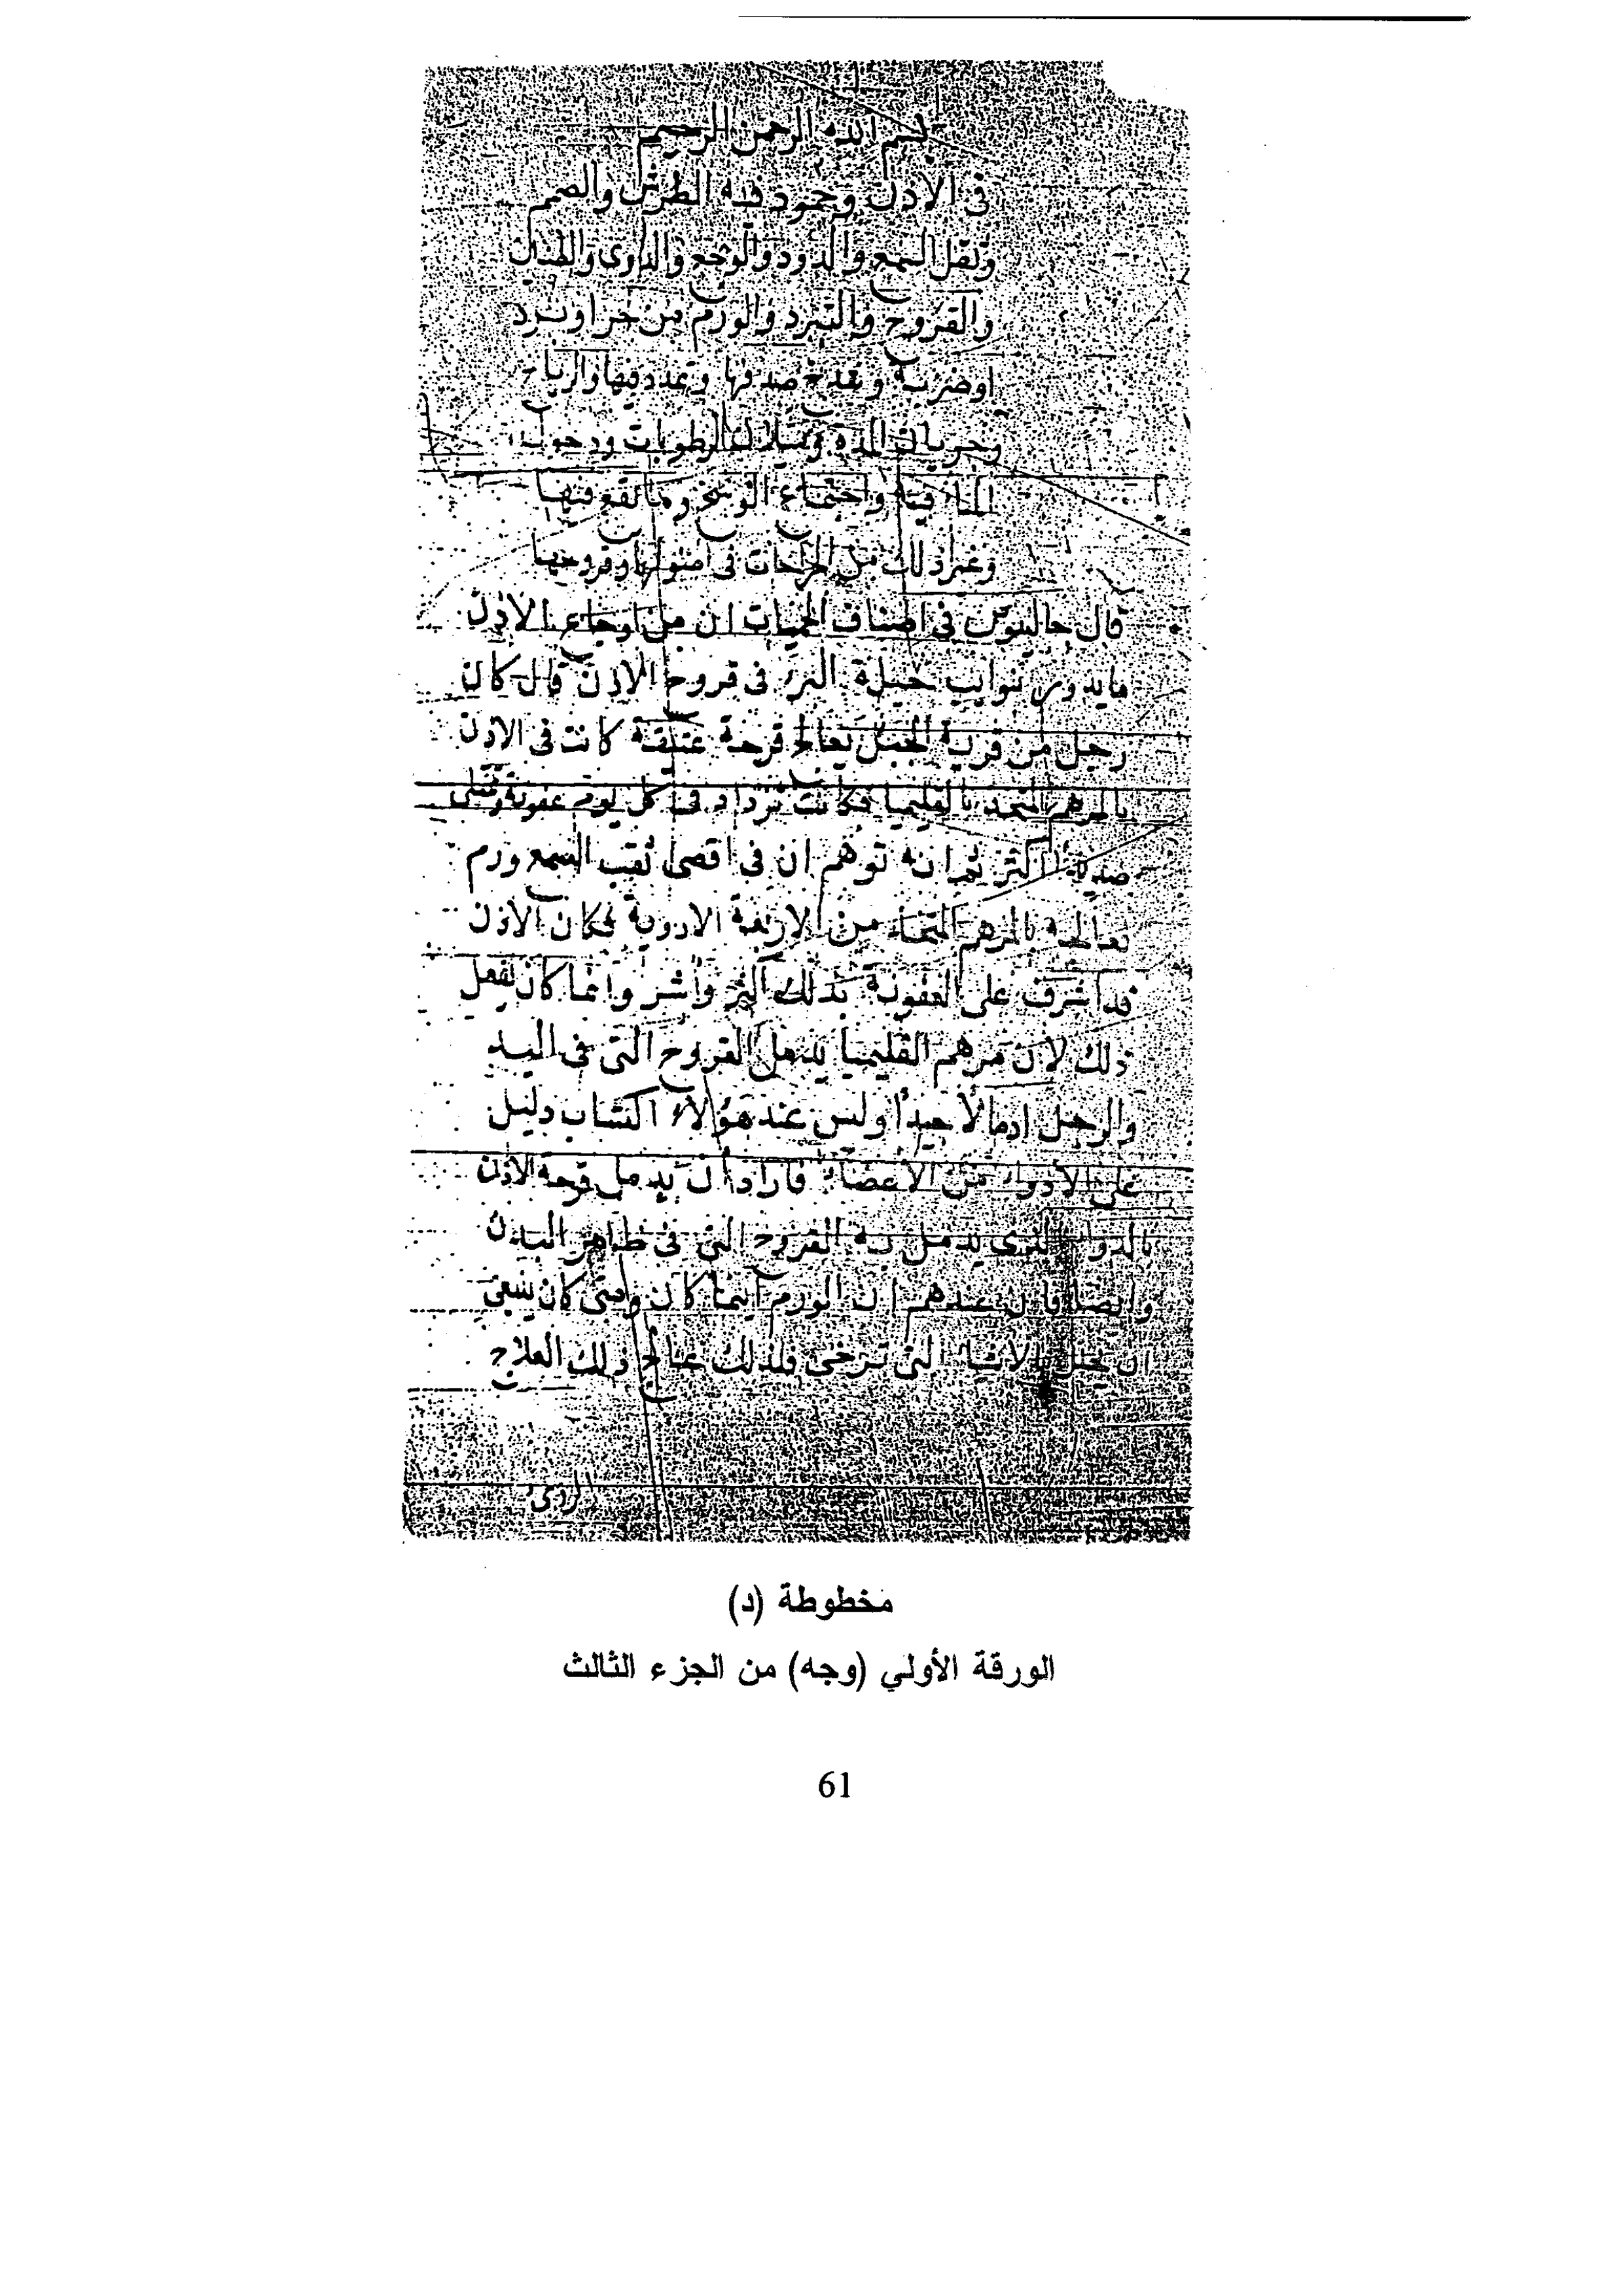 بسم الله الرحمن الرحيم
فى الاذن وجمود فيه الطرش والصمم
وثقل السمع والدود والوجع والدوى والطنين
والقروح والتبرد والورم من حر او برد
اوضربة و صدفها وتمدد فيها والرياح
وجريان المدة وسيلان الرطوبات ودخول
الما فيها واجتماع الوسخ وما يقع فيها
وغير ذلك من الخراجات فى اصولها وقروحها
قال جالينوس فى اصناف الحميات ان من اوجاع الاذن
ما يدور بنوايب حيلة البرء فى قروح الاذن قال كان
رجل من قرية الجبل يعالج قرحة عتيقة كانت فى الاذن
بالمرهم المتخذ بالقليميا فكانت تزداد فى كل يوم عفونة
صديدا اكثر ثم انه توهم ان فى اقصى ثقب السمع ورم
فعالجه بالمرهم المتخذ من الاربعة الادوية فكان الاذن
قد اشرف على العفونة بذلك اكثر واشر وانما كان يفعل
ذلك لان مرهم القليميا يدمل القروح التى فى اليد
والرجل ادمالا جيدا وليس عند هؤلاء اكتساب دليل
على الادواء من الاعضاء فاراد ان يدمل قرحة الاذن
بالدواء الذى يدمل به القروح التى فى ظاهر البدن
وايضا فان عندهم ان الورم اينما كان ومتى كان ينبغى
ان يحلل بالاشياء التى ترخى فلذلك عالج ذلك العلاج
الردى
مخطوطة (د)
الورقة الأولي (وجه) من الجزء الثالث
61